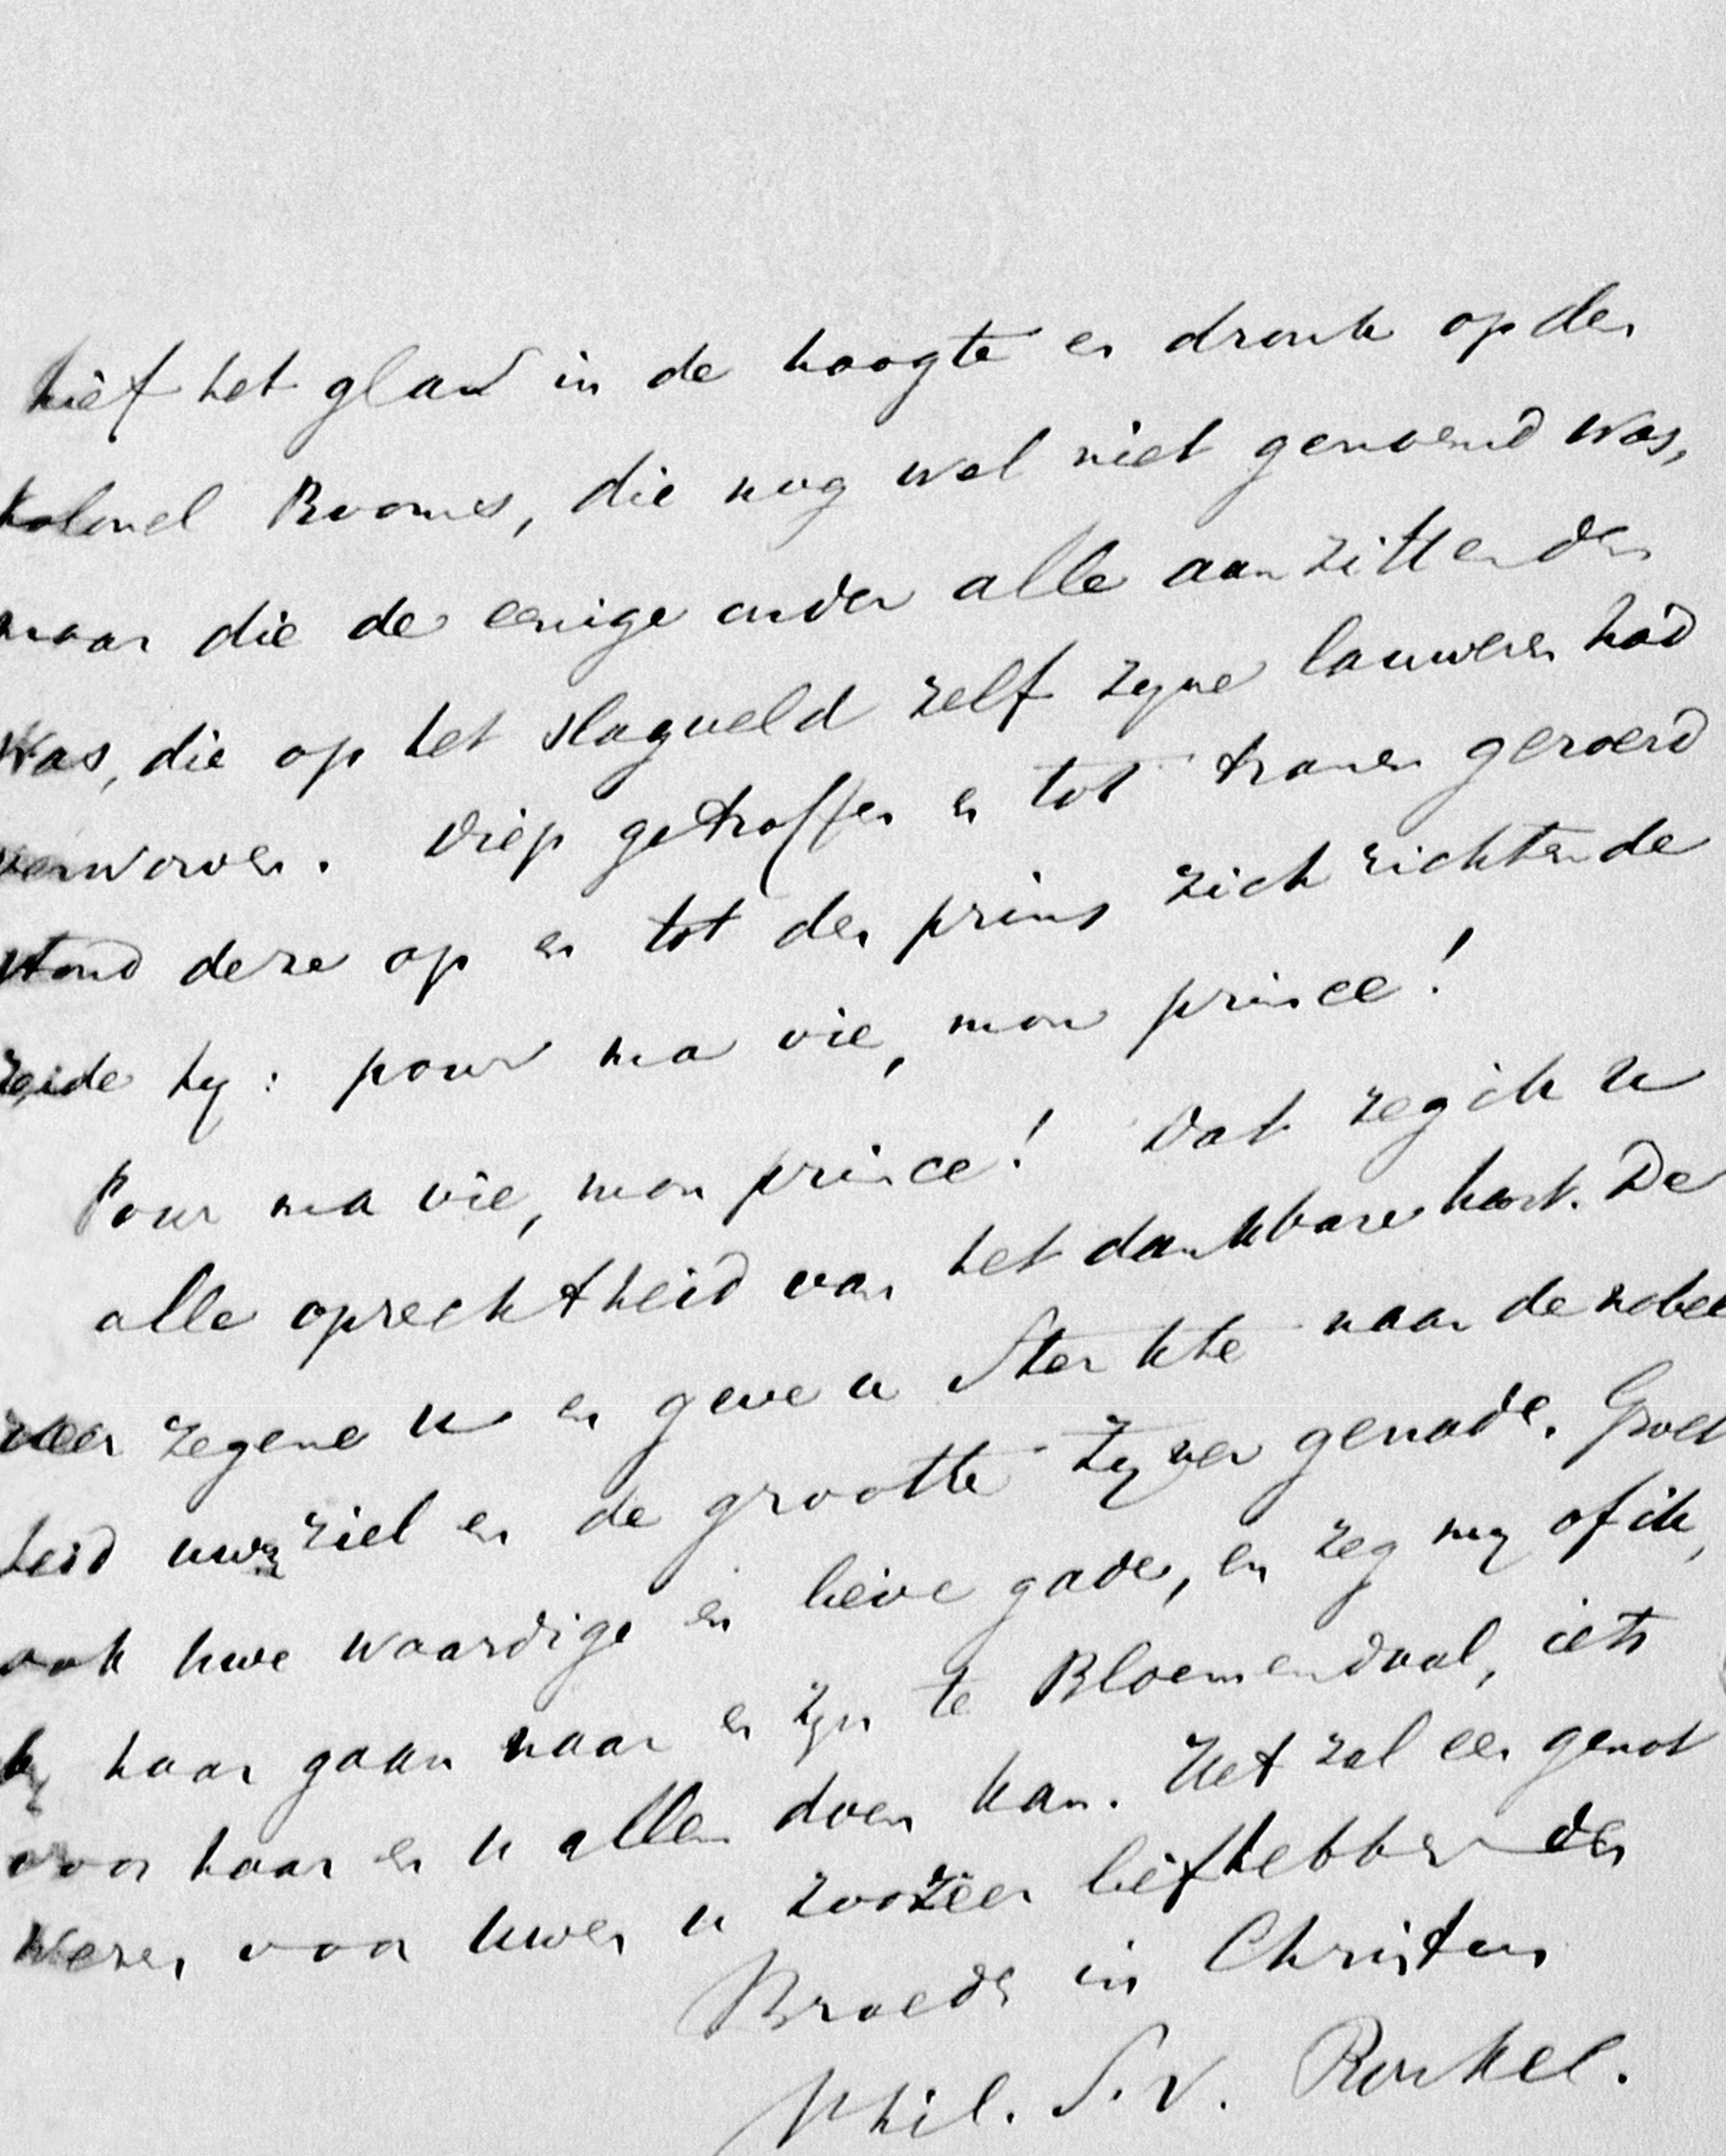 hief het glas in de hoogte en dronk op den
kolonel Rooms, die nog wel niet genoemd was,
maar die de eenige onder alle aanzittenden
was, die op het slagveld zelf zyne lauweren had
verworven. Diep getroffen en tot tranen geroerd
stond deze op en tot den prins zich richtende
zeide hy: pour ma vie, mon prince!
Pour ma vie, mon prince! Dat zeg ik u
alle oprechtheid van het dankbare hart. De
Heer zegene u en geve u sterkte naar de nobel
heid uwer ziel en de grootte zyner genade. Groet
ook uwe waardige en lieve gade, en zeg my of ik,
by haar gaan naar en zyn te Bloemendaal, iets
voor haar en u allen doen kan. Het zal een genot
wezen voor uwen u zoozeer liefhebbenden
Broeder in Christus
Phil. S. v. Ronkel.